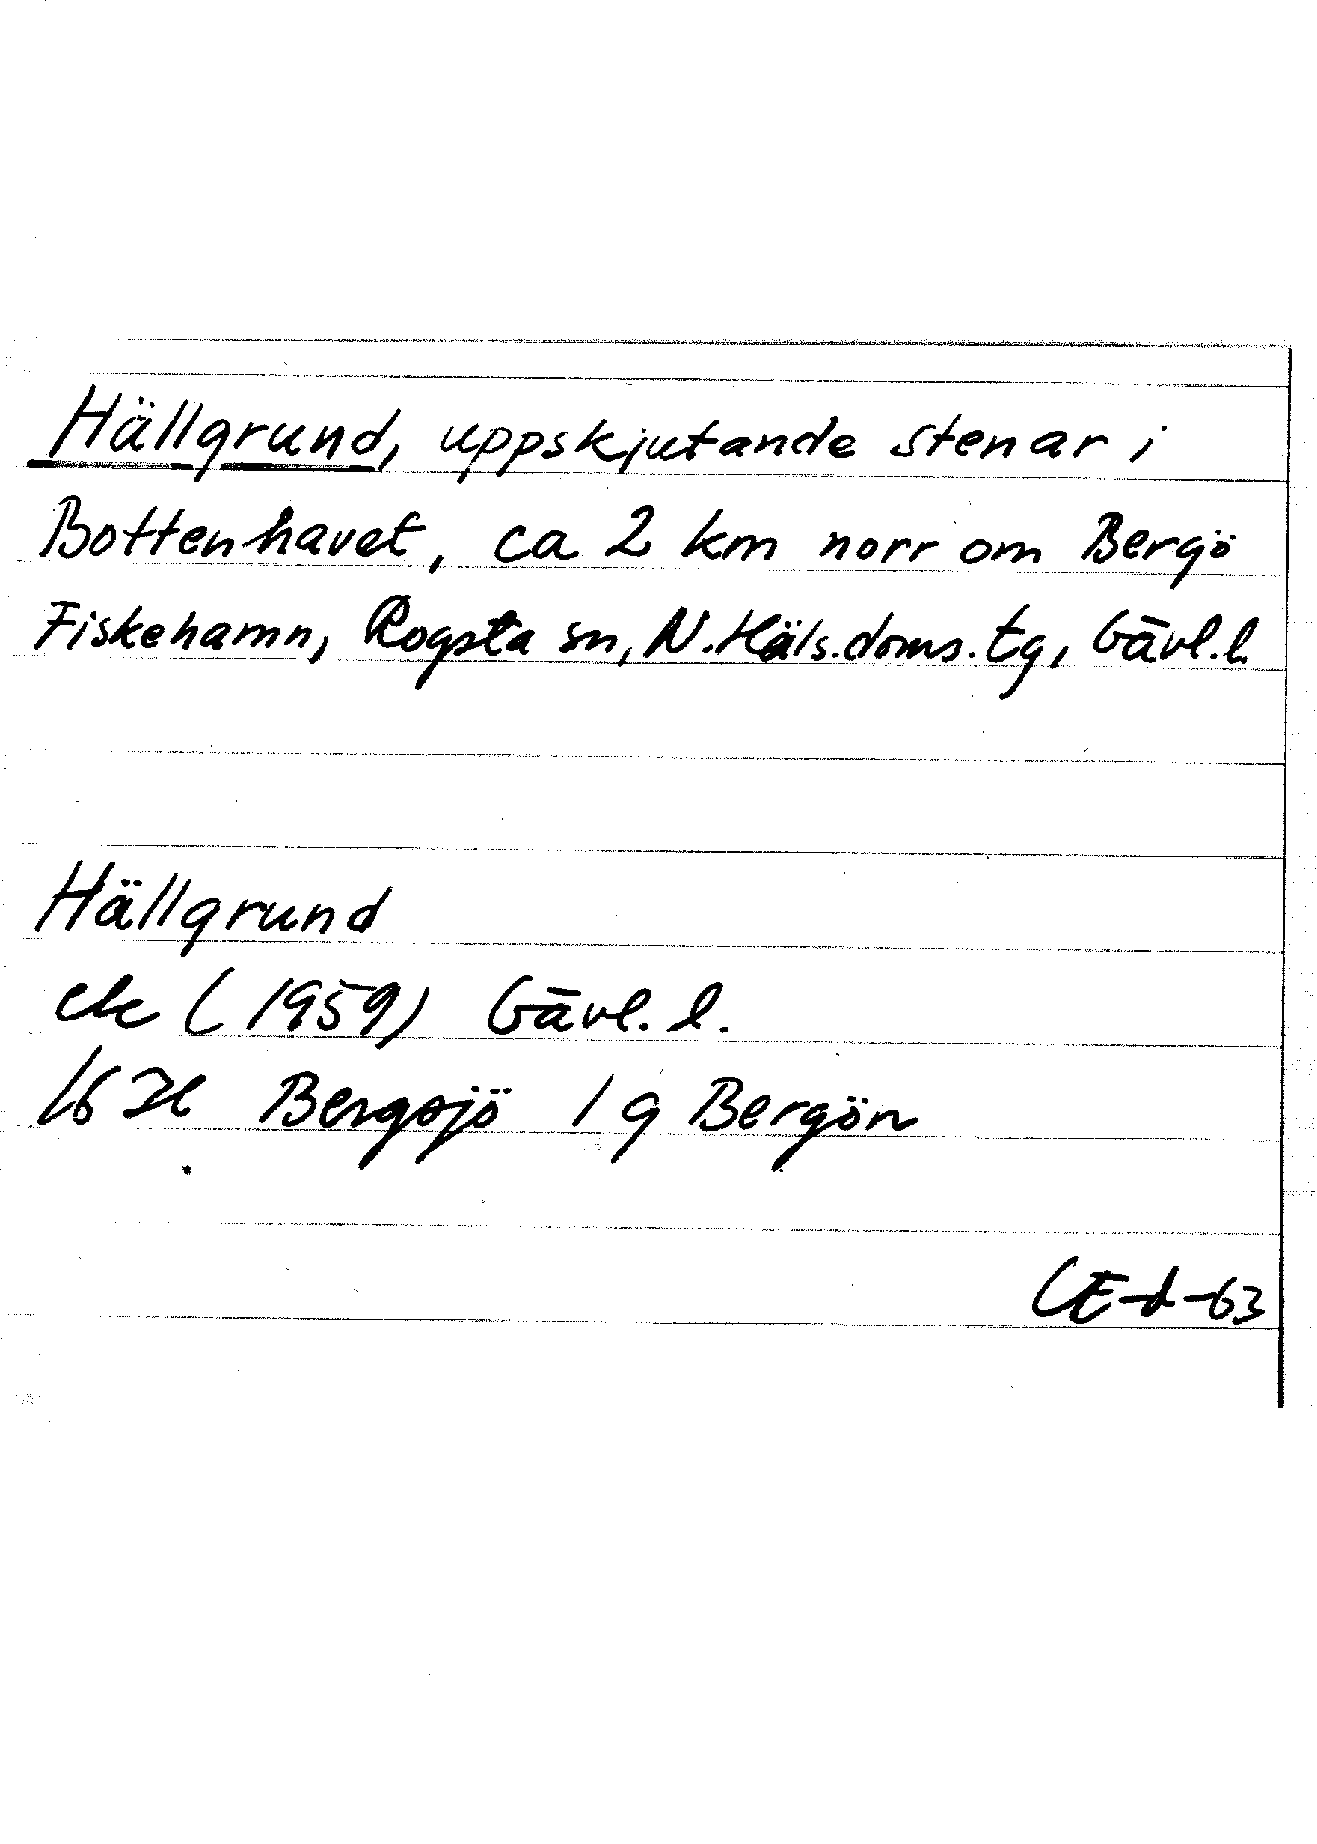 Hällgrund, uppskjutande stenar i
Bottenhavet, ca 2 km norr om Bergö
Fiskehamn, Rogsta sn, N.Häls.doms.tg, Gävl.l.
Hällgrund
ek (1959) Gävl.l.
16 H Bergsjö 1 g Bergön
CE-d-63